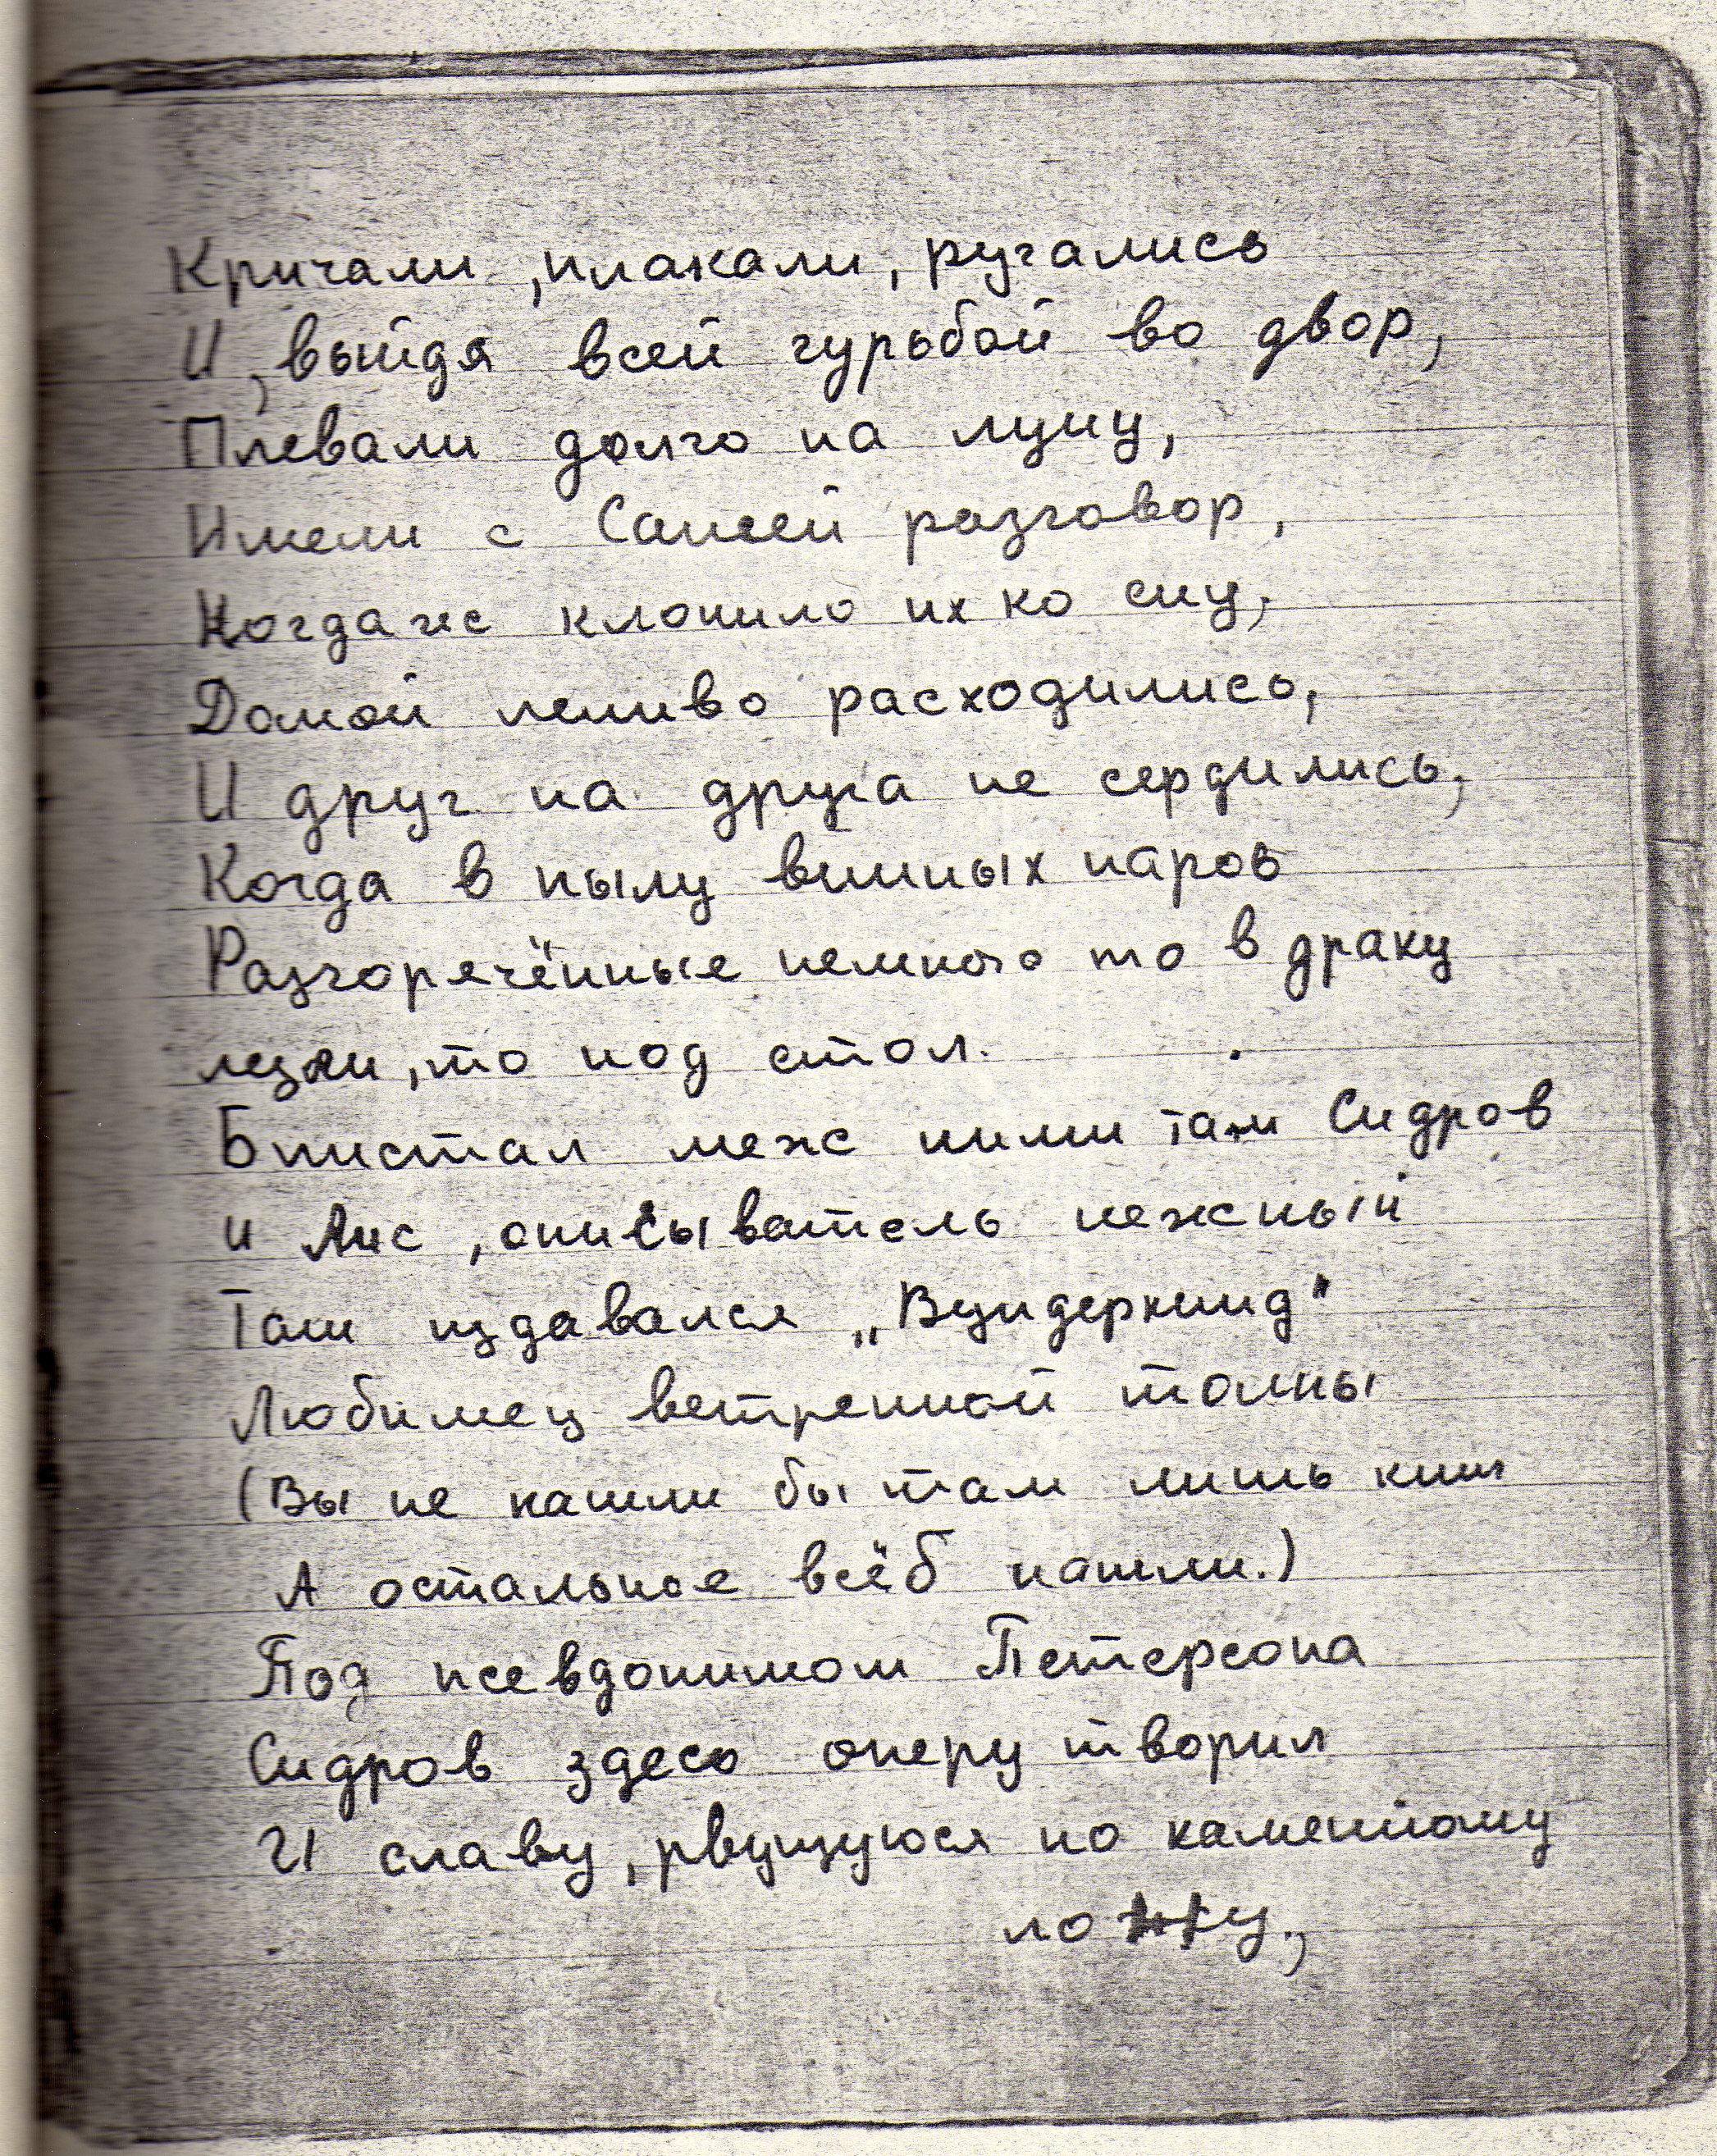 Кричали, плакали, ругались
И, выйдя всей гурьбой во двор,
Плевали долго на луну,
Имели с Сансей разговор,
Когда же клонило их ко сну,
Домой лениво расходились,
И друг на друга не сердились,
Когда в пылу винных паров
Разгоречённые немного то в драку
лезли, то под стол.
Блистал меж ними там Сидров
и Лис, описыватель нежный
Там издавался „Вундеркинд"
Любимец ветренной толпы
(Вы не нашли бы там лишь книг
А остальное всёб нашли.)
Под псевдонимом Петерсона
Сидров здесь оперу творил
И славу, рвущуюся по каменному